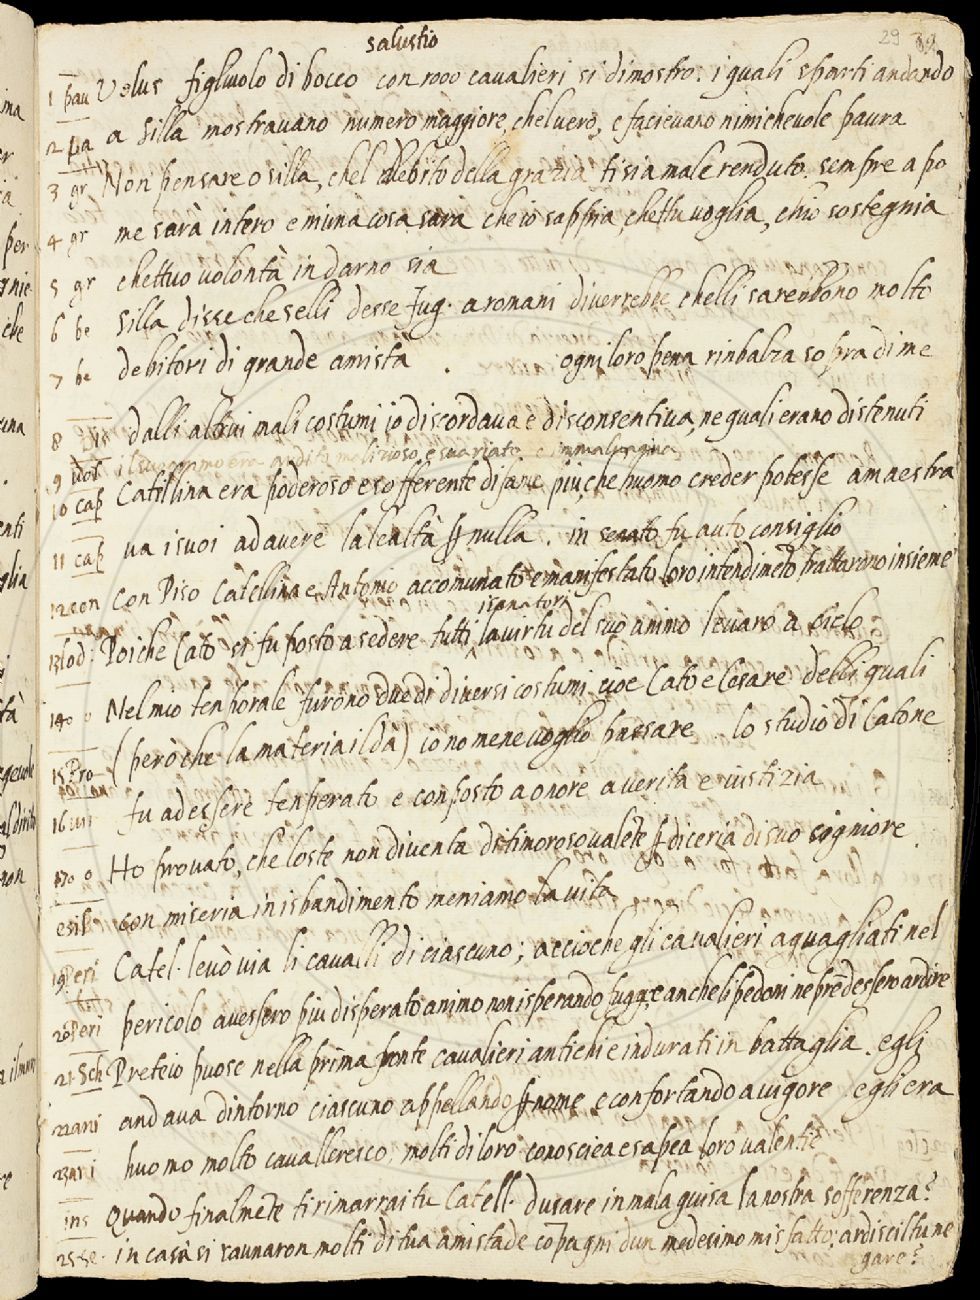 salustio
29
1 pau Velus figluolo di bocco con 1000 cavalieri si dimostro: i quali sparti andando
2 pa a silla mostravano numero maggiore, chel vero, e facievano nimichevole paura
3 gr Non pensare o silla, chel debito della grazia ti sia male renduto sempre a po
4 gr me sarà intero e niuna cosa sara che io sappia, chettu voglia, chio sostegnia
5 gr chettuo volontà indarno sia
6 be Silla disse che selli desse Jug. a romani diverrebbe chelli sarebbono molto
7 be debitori di grande amista . ogni loro pena rinbalza sopra di me
8 dalli altrui mali costumi io discordava e disconsentiva, ne quali erano distenuti
9 vol il suo animo era ardito malizioso, e svariato
10 cap Catillina era poderoso e sofferente di fame piu, che huomo creder potesse amaestra
11 cap va i suoi ad avere la lealtà p nulla . in senato fu auto consiglio
12 con con Piso Catellina e Antonio accomunato e manifestato loro intendimeto trattarono insieme
i sanatori
13 lod: Poiche Cato si fu posto a sedere tutti la virtu del suo animo levaro a cielo
14 o o Nel mio tenporale furono due di diversi costumi cioe Cato e Cesare delli quali
15 Pro (però che la materia il da) io no me ne voglio passare . lo studio di Catone
16 fu ad essere tenperato e conposto a onore a verita e iustizia
17 o o Ho provato, che loste non diventa di timoroso valete p diceria di suo signiore .
esil con miseria in isbandimento meniamo la vita
19 Peri Catel. levò via li cavalli di ciascuno; accioche gli cavalieri aguagliati nel
20 Peri pericolo avessero piu disperato animo non isperando fugg, e anche li pedoni ne predessero ardire
21 Sch Preteio puose nella prima fronte cavalieri antichi e indurati in battaglia . egli
22 ani andava dintorno ciascuno appellando p nome e confortando a vigore egli era
23 ani huomo molto cavalleresco; molti di loro conosciea e sapea loro valentie
ins Quando finalmete ti rimarrai tu Catell. dusare in mala guisa la nostra sofferenza?
25 se . in casa si raunaron molti di tua amistade copagni dun medesimo misfatto; ardiscil tu ne
gare?